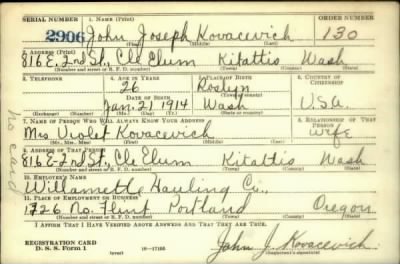 SERIAL NUMBER 1. NAME (Print) ORDER NUMBER
2906 John Joseph Kovacevich 130
2. ADDRESS (Print)
816 E. 2nd St., Cle Elum Kitattis Wash
(Number and street or R. F. D. number) (Town) (County) (State)
3. TELEPHONE 4. AGE IN YEARS 5. PLACE OF BIRTH 6. COUNTRY OF CITIZENSHIP
26 Roslyn
DATE OF BIRTH (Town or county)
Jan. 21 1914 Wash U.S.A.
(Exchange) (Number) (Mo.) (Day) (Yr.) (State or country)
7. NAME OF PERSON WHO WILL ALWAYS KNOW YOUR ADDRESS 8. RELATIONSHIP OF THAT PERSON
Mrs Violet Kovacevich wife
(Mr., Mrs., Miss) (First) (Middle) (Last)
9. ADDRESS OF THAT PERSON
816 E-2nd St., Cle Elum Kitattis Wash
(Number and street or R. F. D. number) (Town) (County) (State)
10. EMPLOYER'S NAME
Willamette Hauling Co.,
11. PLACE OF EMPLOYMENT OR BUSINESS
1726 No. Flint Portland Oregon
(Number and street or R. F. D. number) (Town) (County) (State)
I AFFIRM THAT I HAVE VERIFIED ABOVE ANSWERS AND THAT THEY ARE TRUE.
REGISTRATION CARD
D. S. S. Form 1 (over) 16—17105 John J. Kovacevich
(Registrant's signature)
no card